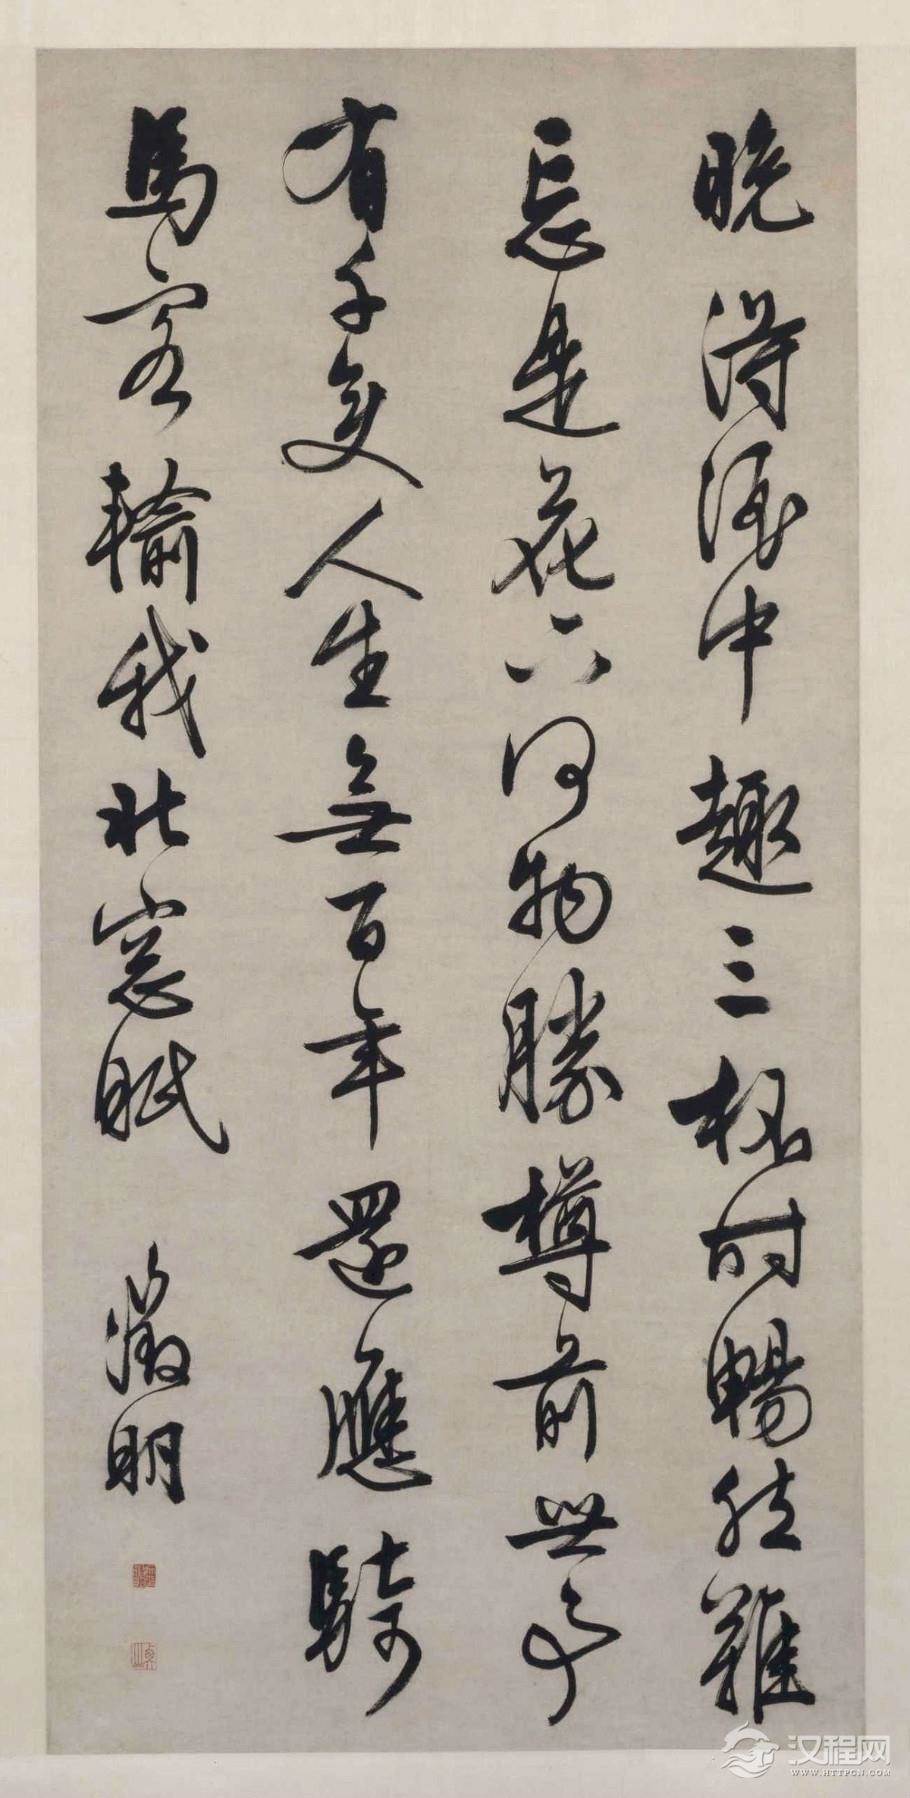 晚得酒中趣三杯时暢然難
忘是花下何物勝樽前世事
有千變人生無百年還應騎
馬客輸我北窓眠
徵明
汉程网
WWW.HTTPCN.COM